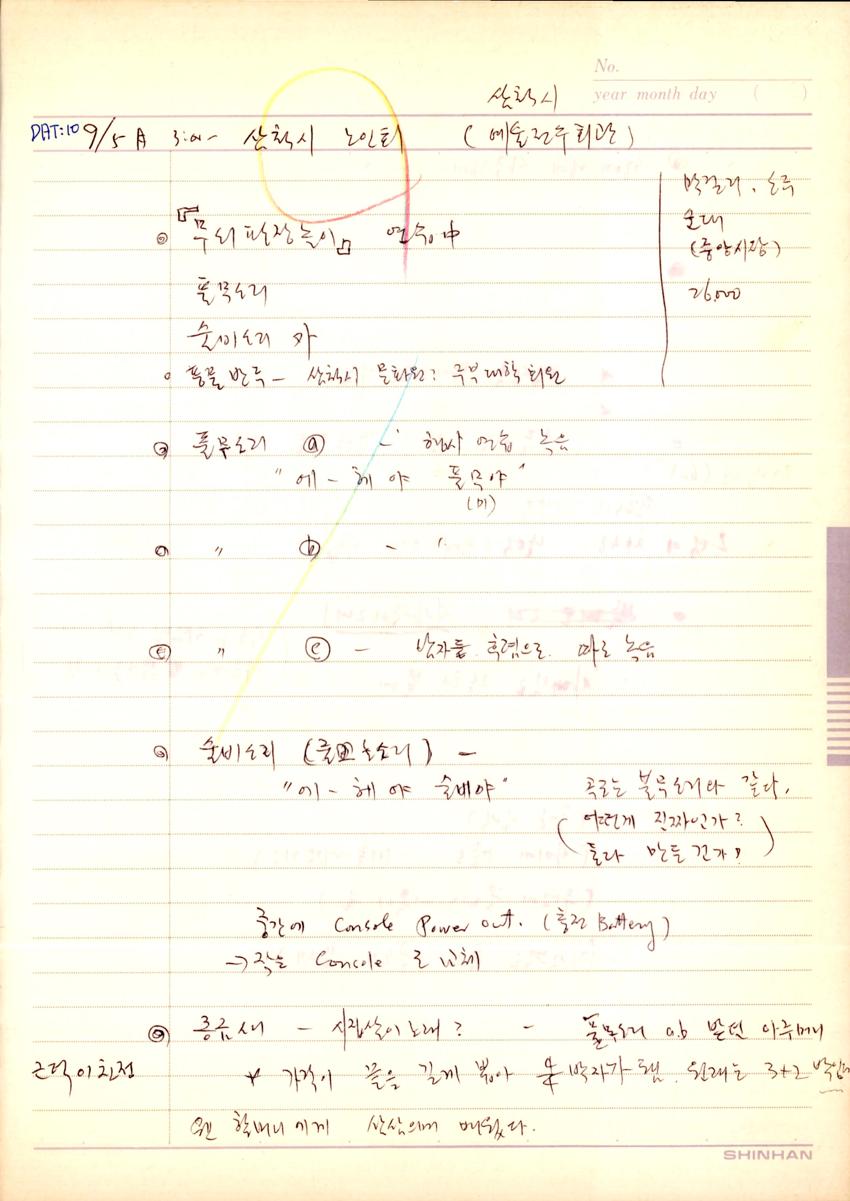 No.
삼척시
year month day ( )
DAT:10 9/5 A 3:00- 삼척시 노인회 (예술전수회관)
막걸리, 소주
순대
(중앙시장)
26,000
◎ 『무의 판장놀이』 연습中
풀무소리
술비소리 作
○ 풍물반주 - 삼척시 문화원? 주부대학 회원
◎ 풀무소리 ⓐ - 행사 연습 녹음
"에 - 헤 야 풀무야"
(미)
◎ 〃 ⓑ - 〃
◎ 〃 ⓒ - 남자들 후렴으로. 따로 녹음
◎ 술비소리 (줄꼬는소리) -
"에 - 헤 야 술비야" 곡조는 불무소리와 같다.
(어떤게 진짜인가?
둘다 만든건가?)
중간에 Console Power out. (충전 Battery)
→ 작은 Console 로 교체
◎ 종금새 - 시집살이노래? - 풀무소리 앞 받던 아주머니
근덕이 친정 * 가락이 끝을 길게 뽑아 박자가 됨. 원래는 3+2 박인데
왠 할머니에게 삼삼의때 배웠다.
SHINHAN